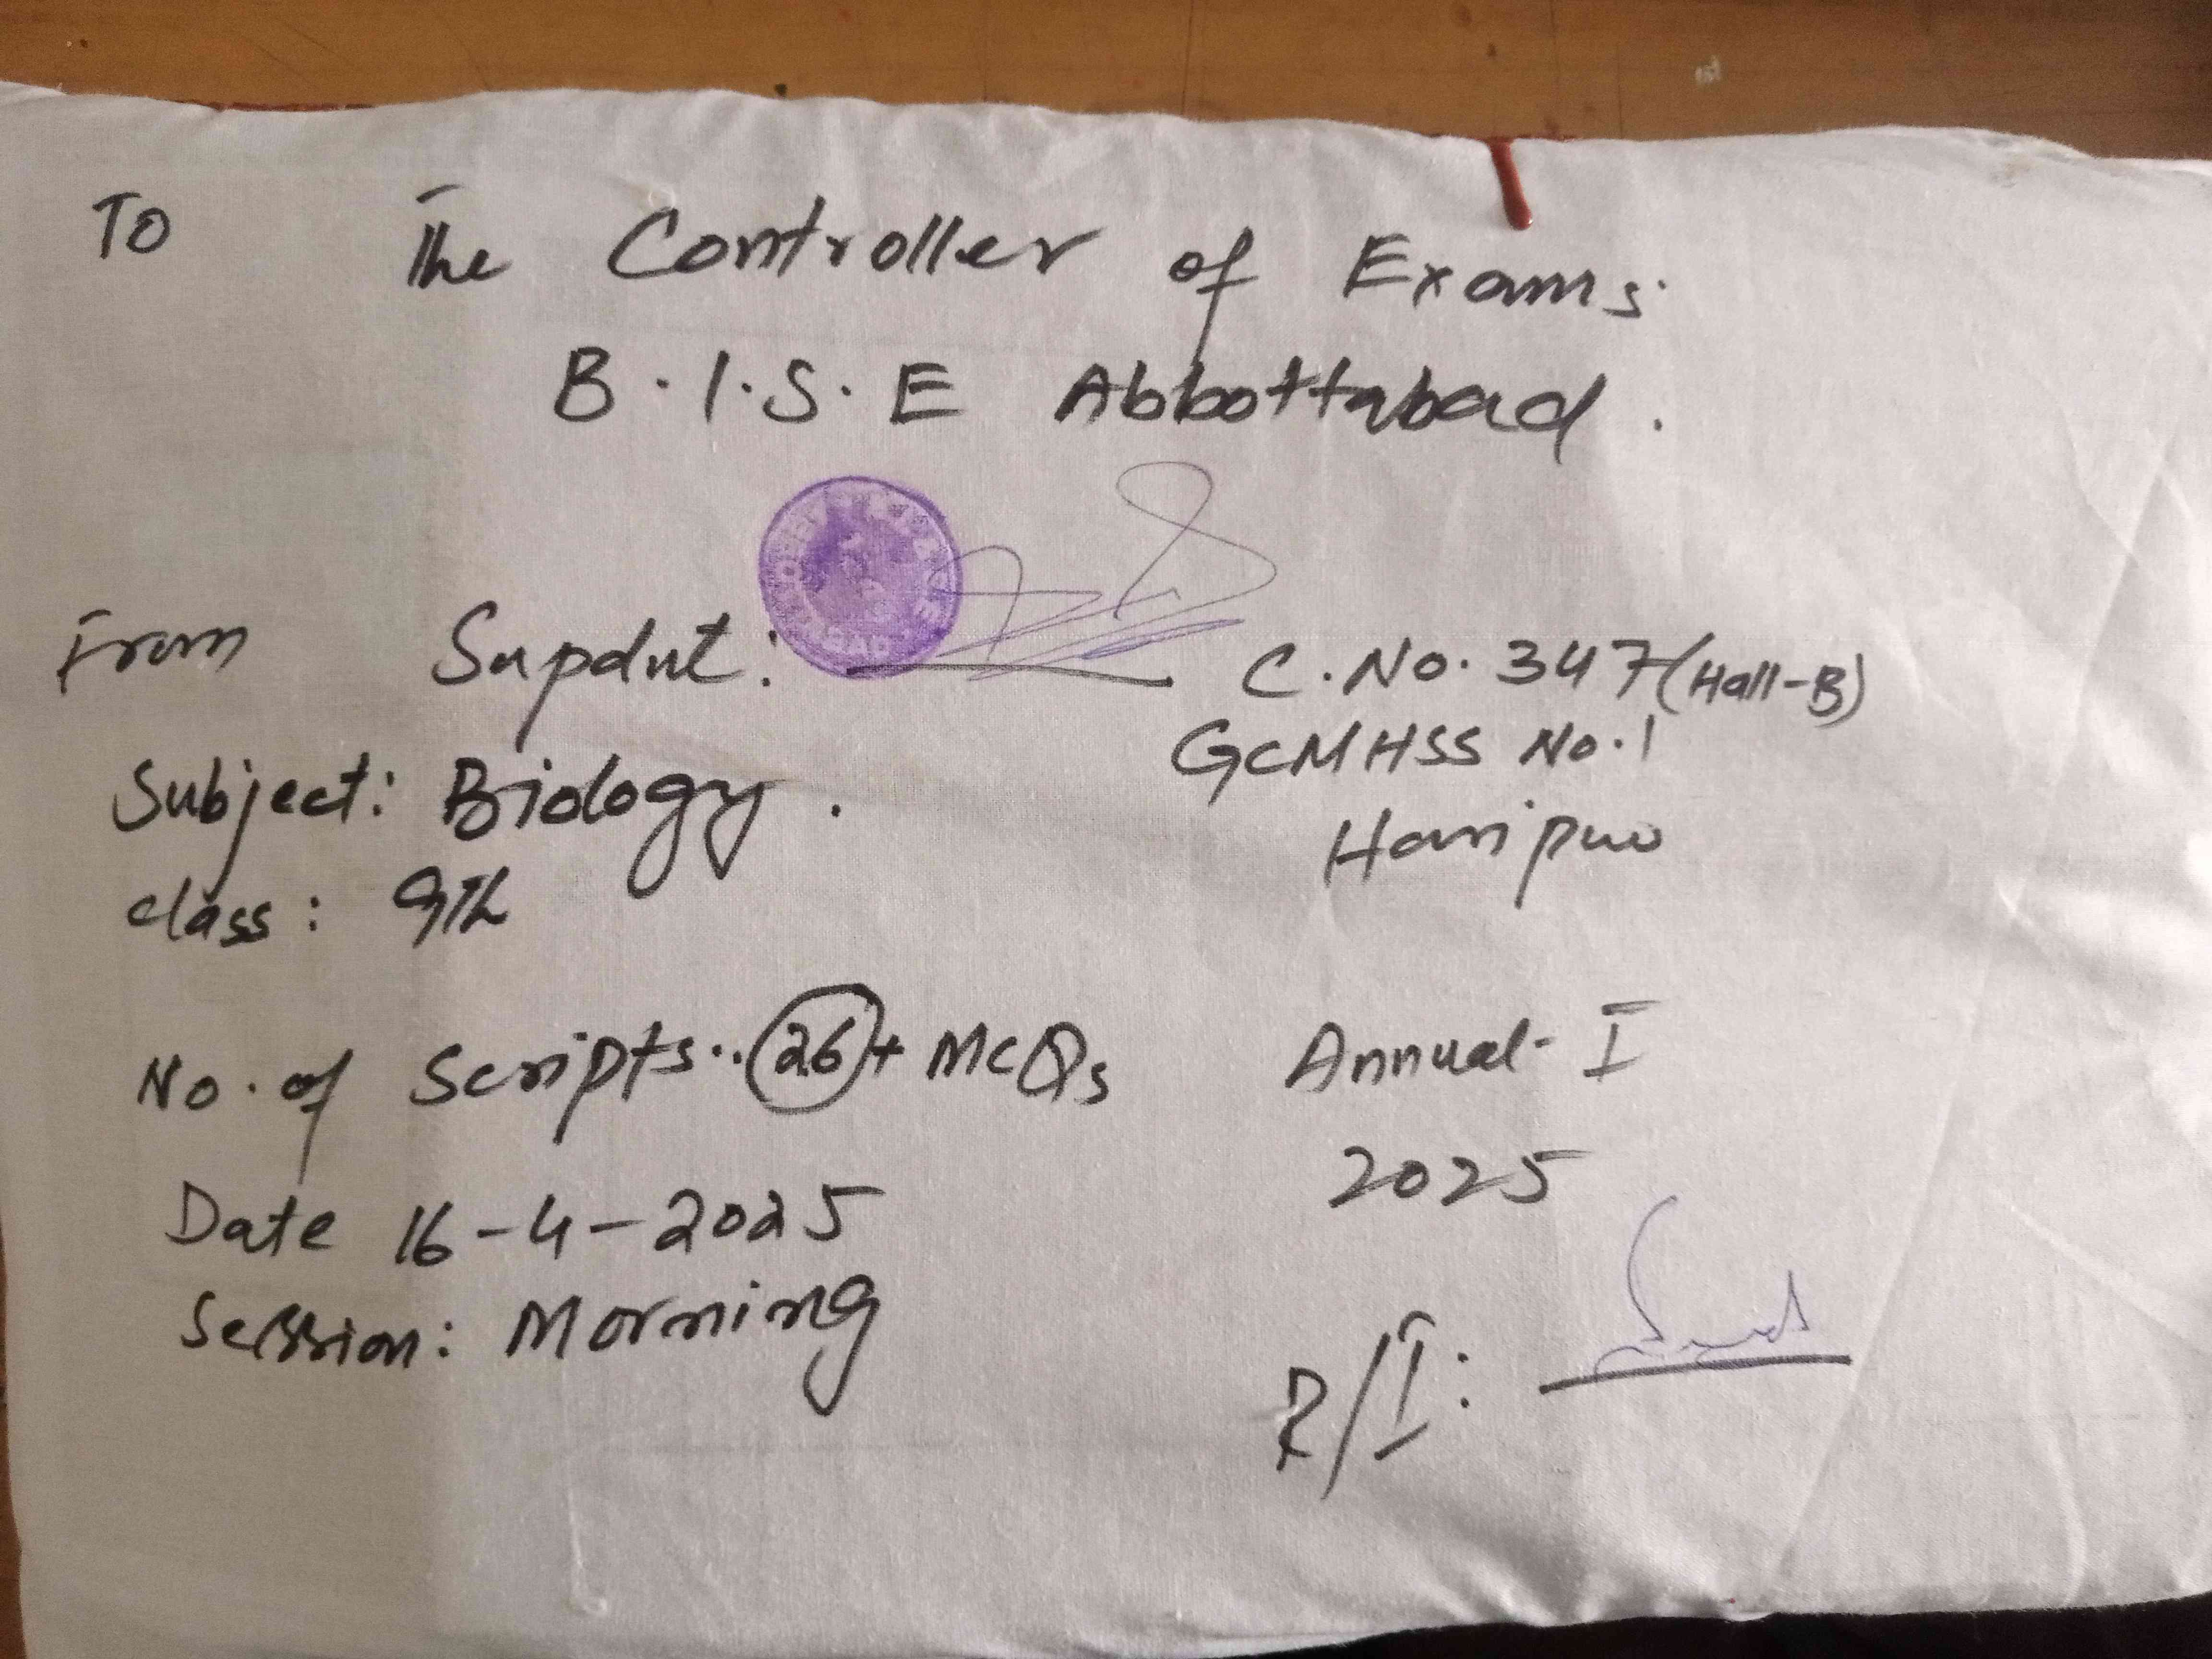 To The Controller of Exams.
B.I.S.E Abbottabad.
From Supdnt: C.No. 347 (Hall-B)
GCMHSS No.1
Haripur
Subject: Biology.
class: 9th
No. of Scripts.. 26 + MCQs Annual-I
2025
Date 16-4-2025
Session: Morning
R/I: